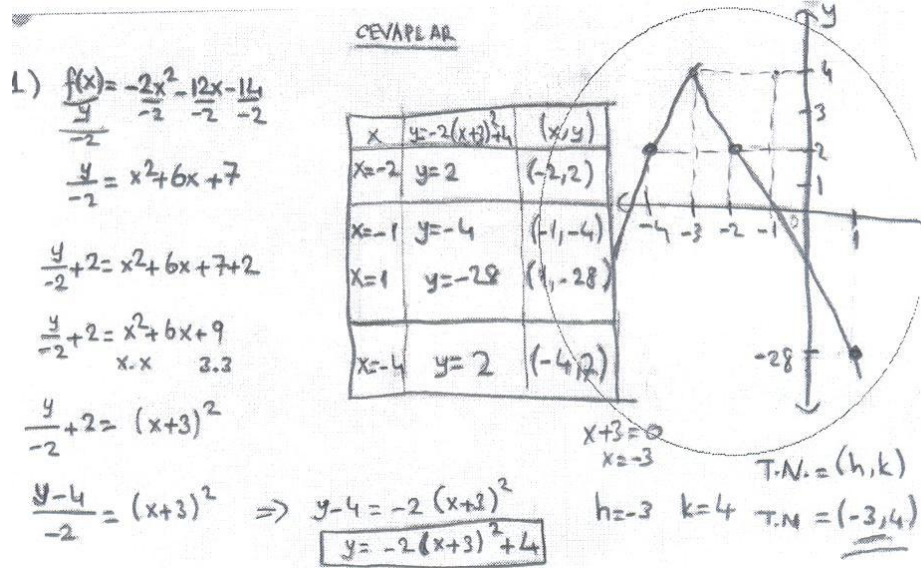 CEVAPLAR
1) f(x) = -2x² - 12x - 14
y/-2 -2 -2 -2
y/-2 = x² + 6x + 7
y/-2 + 2 = x² + 6x + 7 + 2
y/-2 + 2 = x² + 6x + 9
x.x 3.3
y/-2 + 2 = (x+3)²
y-4/-2 = (x+3)² ⇒ y-4 = -2(x+3)²
y = -2(x+3)² + 4
x y=-2(x+3)²+4 (x,y)
x=-2 y=2 (-2,2)
x=-1 y=-4 (-1,-4)
x=1 y=-28 (1,-28)
x=-4 y=2 (-4,2)
y
4
3
2
1
-4 -3 -2 -1 0 1
-28
x+3=0
x=-3
h=-3 k=4
T.N. = (h,k)
T.N = (-3,4)